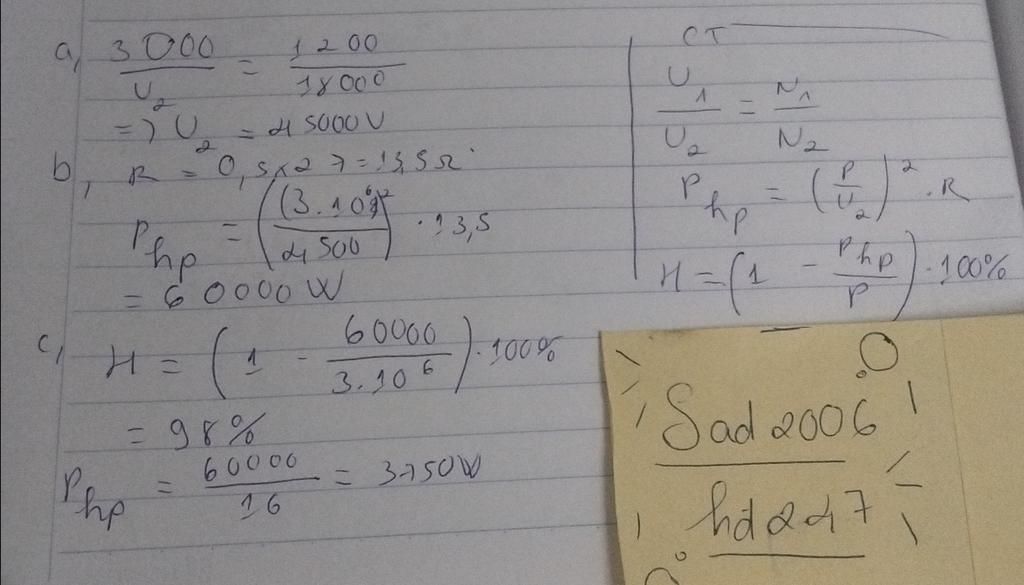 a, 3000/U₂ = 1200/18000
=> U₂ = 45000V
b, R = 0,5x27 = 13,5Ω
P_hp = ((3.10⁶)²/4500) . 13,5
= 60000W
c, H = (1 - 60000/3.10⁶).100%
= 98%
P_hp = 60000/16 = 3750W
CT
U₁/U₂ = N₁/N₂
P_hp = (P/U₂)².R
H = (1 - P_hp/P).100%
Sad2006
hd247